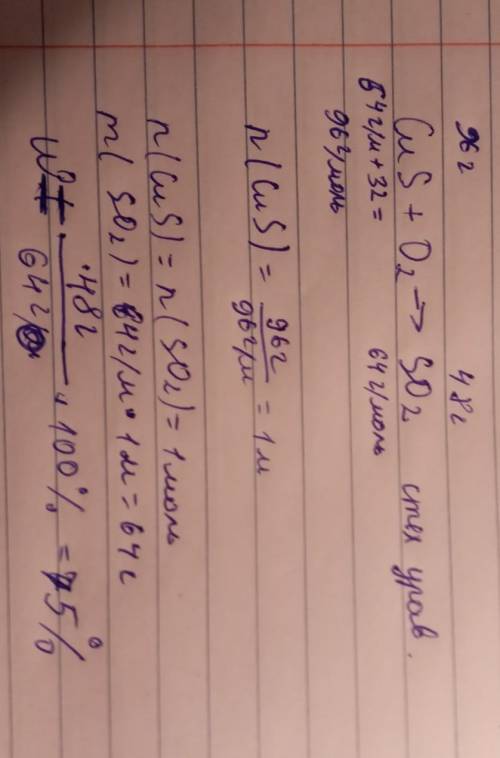 96г 48г
CuS + O₂ → SO₂ стех урав.
64г/м + 32 = 64г/моль
96г/моль
n(CuS) = 96г / 96г/м = 1м
n(CuS) = n(SO₂) = 1 моль
m(SO₂) = 64г/м • 1м = 64г
48г / 64г • 100% = 75%